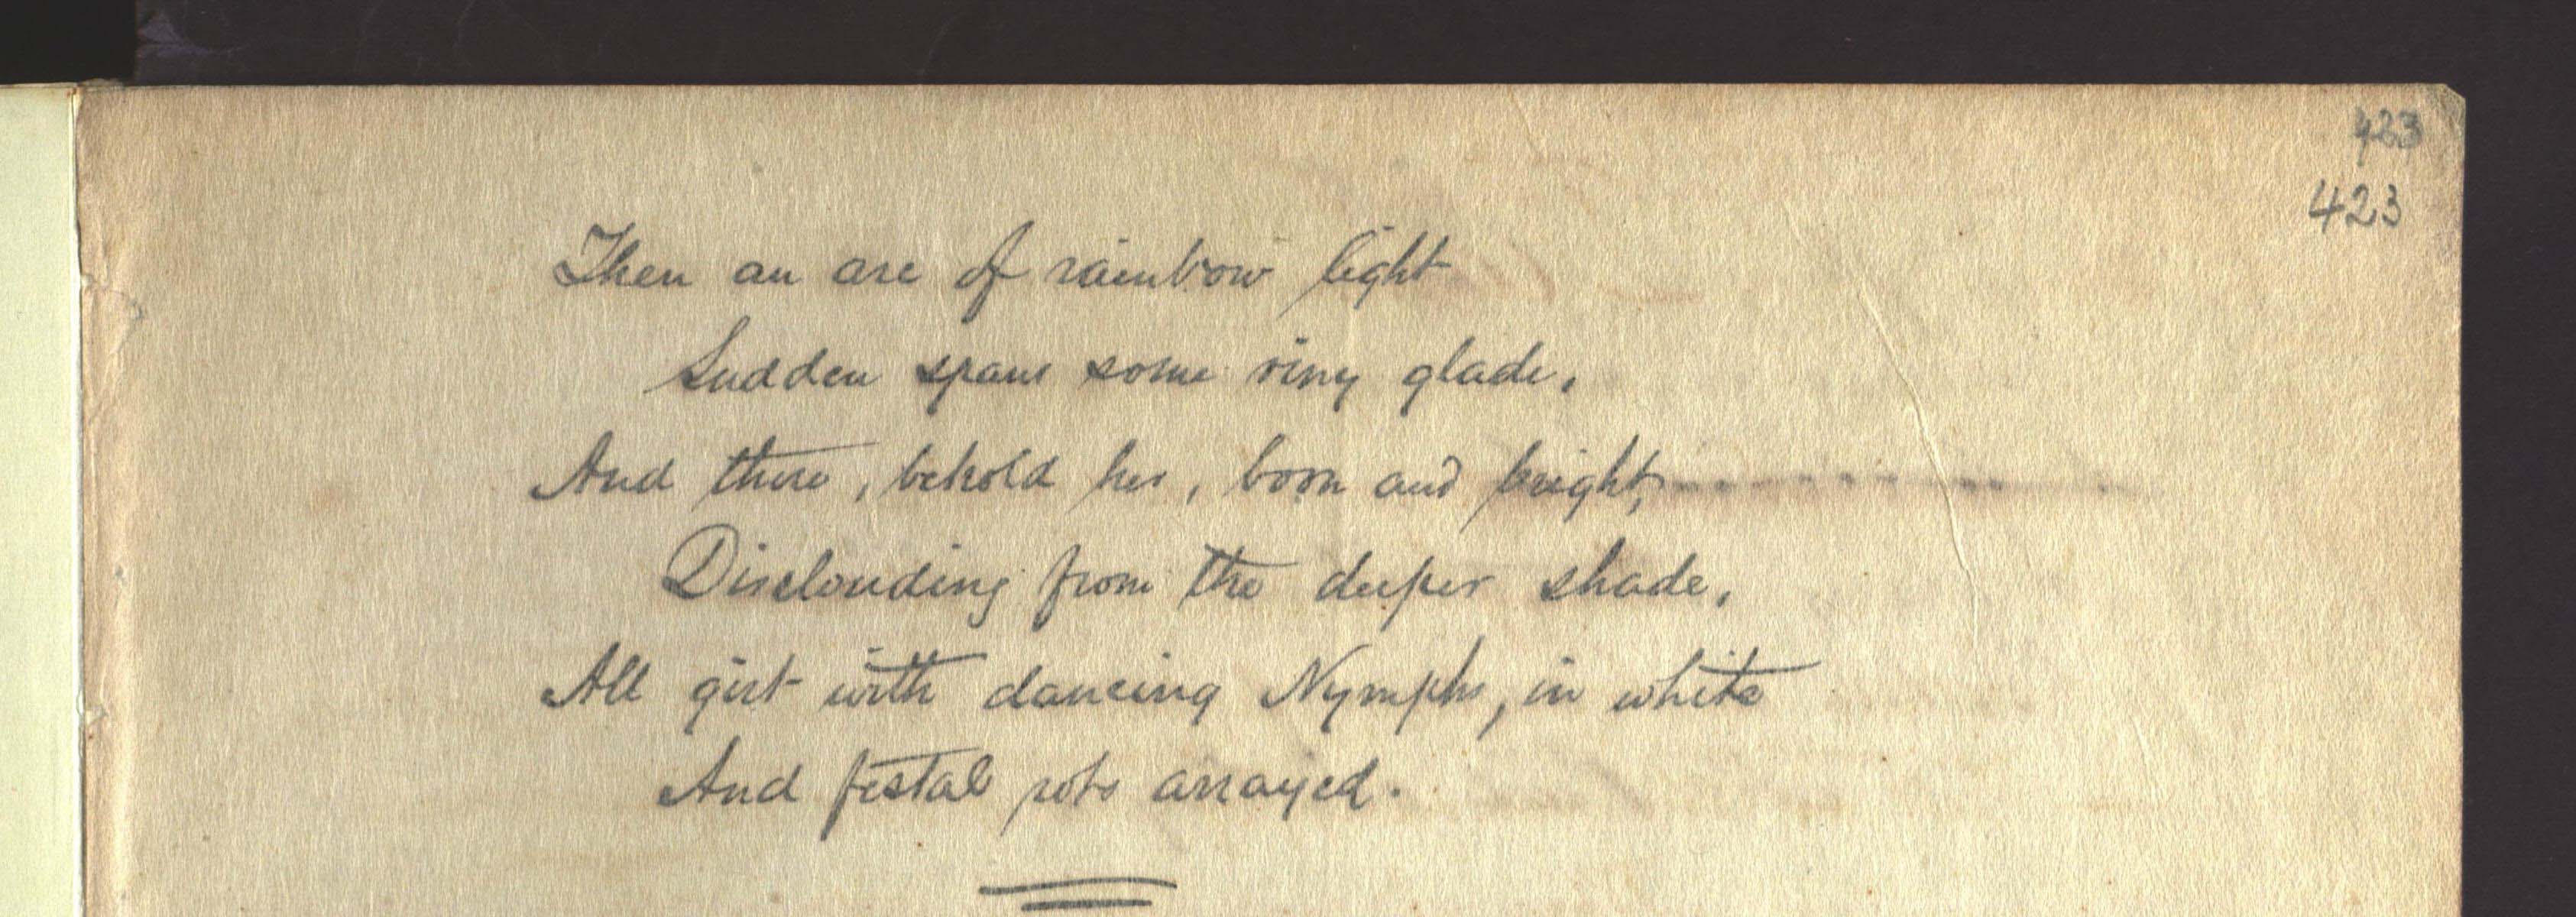 423
423
Then an arc of rainbow light
Sudden spans some viny glade,
And there, behold her, born and bright,
Disclouding from the deeper shade,
All girt with dancing Nymphs, in white
And festal robe arrayed.